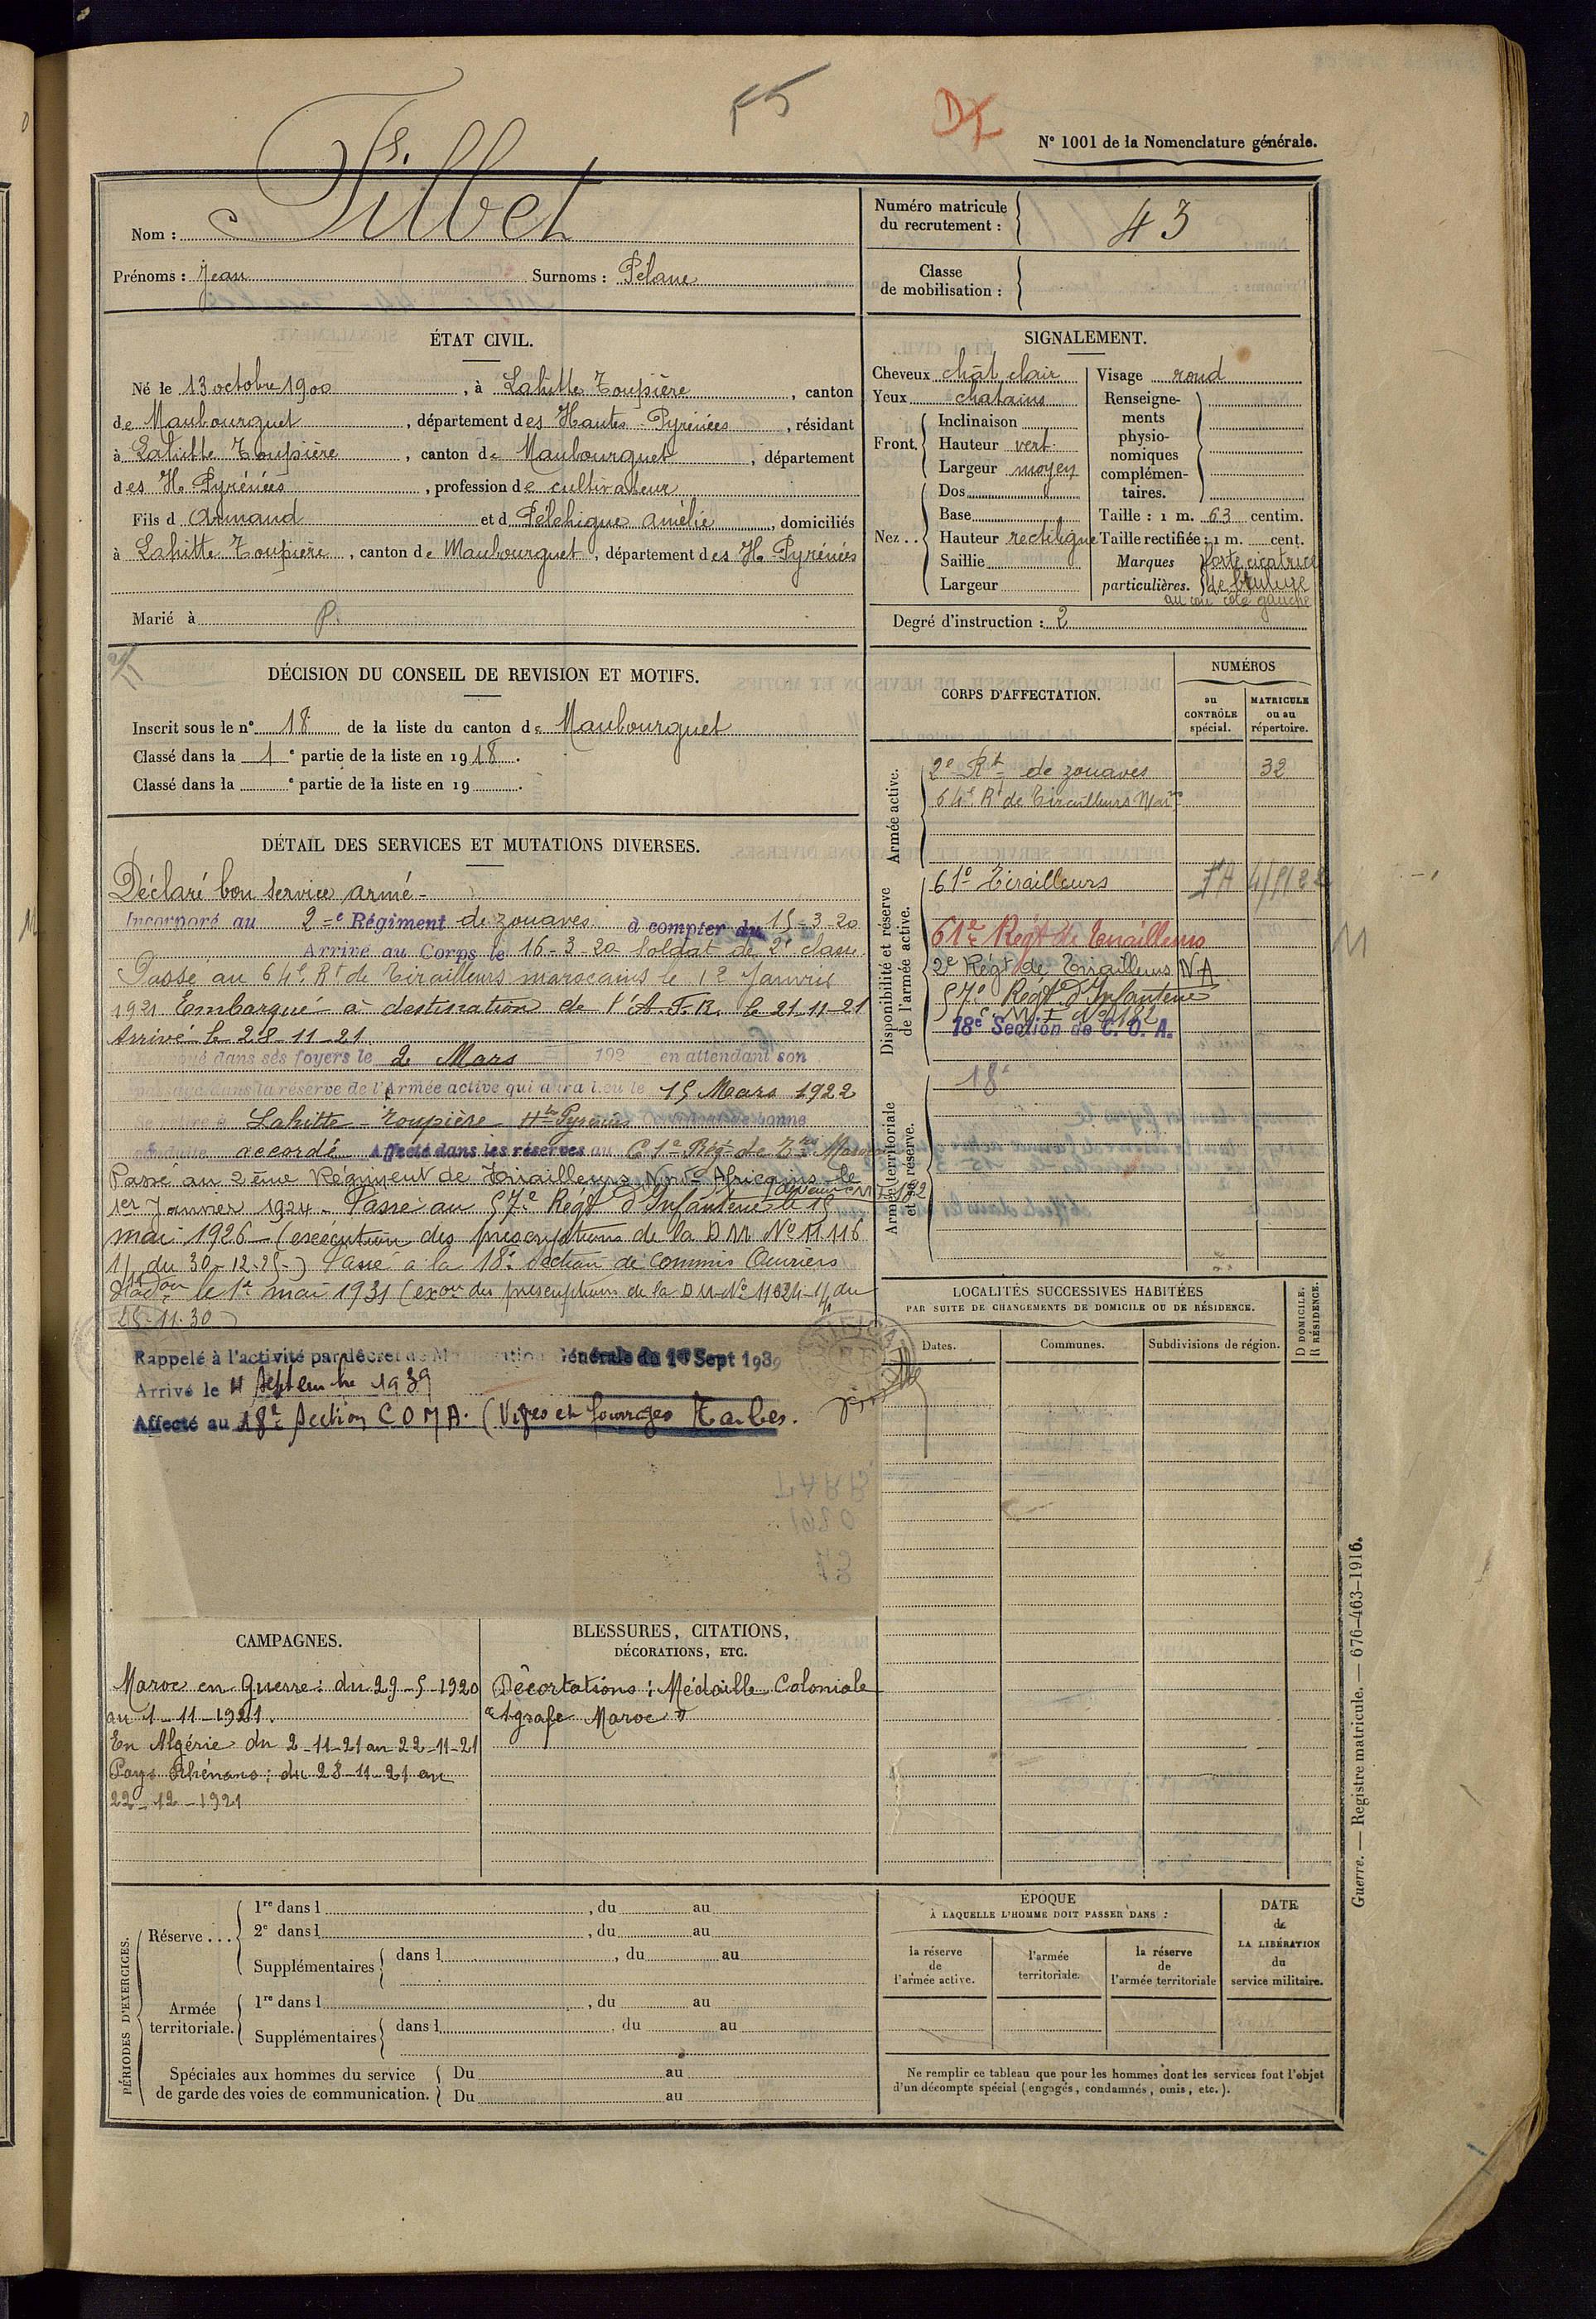 F5
DF
N° 1001 de la Nomenclature générale.
Nom : Filbet
Prénoms : Jean Surnoms : Pélane
Numéro matricule du recrutement : 43
Classe de mobilisation :
ÉTAT CIVIL.
Né le 13 octobre 1900, à Lahitte Toupière, canton
de Maubourguet, département des Hautes-Pyrénées, résidant
à Lahitte Toupière, canton de Maubourguet, département
des H. Pyrénées, profession de cultivateur
Fils d Armand et d Amélie, domiciliés
à Lahitte Toupière, canton de Maubourguet, département des Hs Pyrénées
Marié à
SIGNALEMENT.
Cheveux chât clair
Yeux chatains
Front. Inclinaison
Hauteur vert.
Largeur moyen
Nez .. Dos
Base
Hauteur rectiligne
Saillie
Largeur
Visage rond
Renseignements physionomiques complémentaires.
Taille : 1 m. 63 centim.
Taille rectifiée : 1 m. cent.
Marques particulières. forte cicatrice
de brulure
au cou côté gauche
Degré d'instruction : 2
DÉCISION DU CONSEIL DE REVISION ET MOTIFS.
Inscrit sous le n° 18 de la liste du canton de Maubourguet
Classé dans la 1e partie de la liste en 1918.
Classé dans la e partie de la liste en 19 .
DÉTAIL DES SERVICES ET MUTATIONS DIVERSES.
Déclaré bon service armé -
Incorporé au 2e Régiment de zouaves à compter du 15-3-20
Arrivé au Corps le 16-3-20 Soldat de 2e classe.
Passé au 64e Rt de Tirailleurs marocains le 1er Janvier
1921 Embarqué à destination de l'A.F.R. le 21-11-21
Arrivé le 28-11-21
dans ses foyers le 2 Mars 192 en attendant son
passage dans la réserve de l'Armée active qui aura lieu le 15 Mars 1922
Se retire à Lahitte-Toupière Htes Pyrénées Certificat de bonne
conduite accordé Affecté dans les réserves au 61e Régt de Maroc
Passé au 2ème Régiment de Tirailleurs Nord Africains le
1er Janvier 1924 - Passé au 57e Régt d'Infanterie le 15
mai 1926 - (exécution des prescriptions de la DM No 11.116
du 30-12-25-) Passé à la 18e Section de Commis Ouvriers
le 1er mai 1931 (exon des prescriptions de la DM No 11624 du
25-11-30)
Rappelé à l'activité par décret de Mobilisation Générale du 1er Sept 1939
Arrivé le 4 Septembre 1939
Affecté au 18e Section COMA. (Vivres et fourrages Tarbes.
CORPS D'AFFECTATION.
NUMÉROS
au CONTRÔLE spécial.
MATRICULE ou au répertoire.
Armée active.
2e Rt de zouaves 32
64e R de Tirailleurs Mar
Disponibilité et réserve de l'armée active.
61e Tirailleurs
61e Régt de Tirailleurs
2e Régt de Tirailleurs N.A.
57e Régt d'Infanterie
18e Section de C. O. A.
Armée territoriale et sa réserve.
18e
LOCALITÉS SUCCESSIVES HABITÉES
PAR SUITE DE CHANGEMENTS DE DOMICILE OU DE RÉSIDENCE.
Dates. Communes. Subdivisions de région.
D DOMICILE.
R RÉSIDENCE.
CAMPAGNES.
Maroc en guerre : du 29-5-1920
au 1-11-1921.
En Algérie du 2-11-21 au 22-11-21
Pays Rhénans : du 28-11-21 au
22-12-1921
BLESSURES, CITATIONS,
DÉCORATIONS, ETC.
Décortations : Médaille Coloniale
"Agrafe Maroc"
PÉRIODES D'EXERCICES.
Réserve ... 1re dans l , du au
2e dans l , du au
Supplémentaires dans l , du au
Armée territoriale. 1re dans l , du au
Supplémentaires dans l , du au
Spéciales aux hommes du service Du au
de garde des voies de communication. Du au
ÉPOQUE
À LAQUELLE L'HOMME DOIT PASSER DANS :
la réserve de l'armée active.
l'armée territoriale.
la réserve de l'armée territoriale
DATE de LA LIBÉRATION du service militaire.
Ne remplir ce tableau que pour les hommes dont les services font l'objet
d'un décompte spécial (engagés, condamnés, omis, etc.).
Guerre. — Registre matricule. — 676-463-1916.